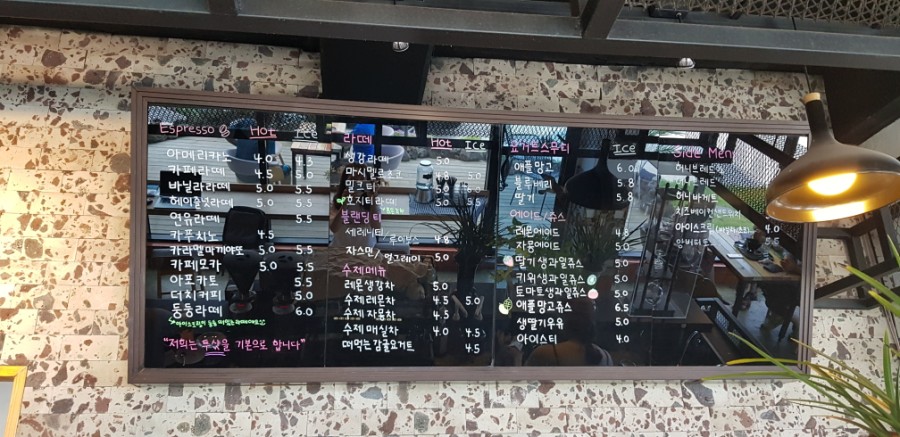 Espresso Hot Ice
아메리카노 4.0 4.3
카페라떼 4.5 5.0
바닐라라떼 5.0 5.5
헤이즐넛라떼 5.0 5.5
연유라떼 5.5
카푸치노 4.5
카라멜마끼야또 5.0 5.5
카페모카 5.0 5.5
아포카토 5.5
더치커피 5.0
둥둥라떼 6.0
"저희는 투샷을 기본으로 합니다"
라떼 Hot Ice
생강라떼 5.0
마시멜로초코 4.8 5.0
밀크티 5.0
호지티라떼 5.0 5.5
블랜딩티
세레니티 / 루이보스 4.8
자스민 / 얼그레이 5.0
수제메뉴
레몬생강차 5.0
수제 레몬차 4.5 5.0
수제 자몽차 4.5
수제 매실차 4.0 4.5
떠먹는 감귤요거트 4.5
요거트스무디 Ice
애플망고 6.0
블루베리 5.8
딸기 5.8
에이드/쥬스
레몬에이드 4.8
자몽에이드 5.0
딸기생과일쥬스 5.0
키위생과일쥬스 5.0
토마토생과일쥬스 5.0
애플망고쥬스 6.5
생딸기우유 5.0
아이스티 4.0
Side Menu
허니브레드
허니바게트
아이스크림 4.0